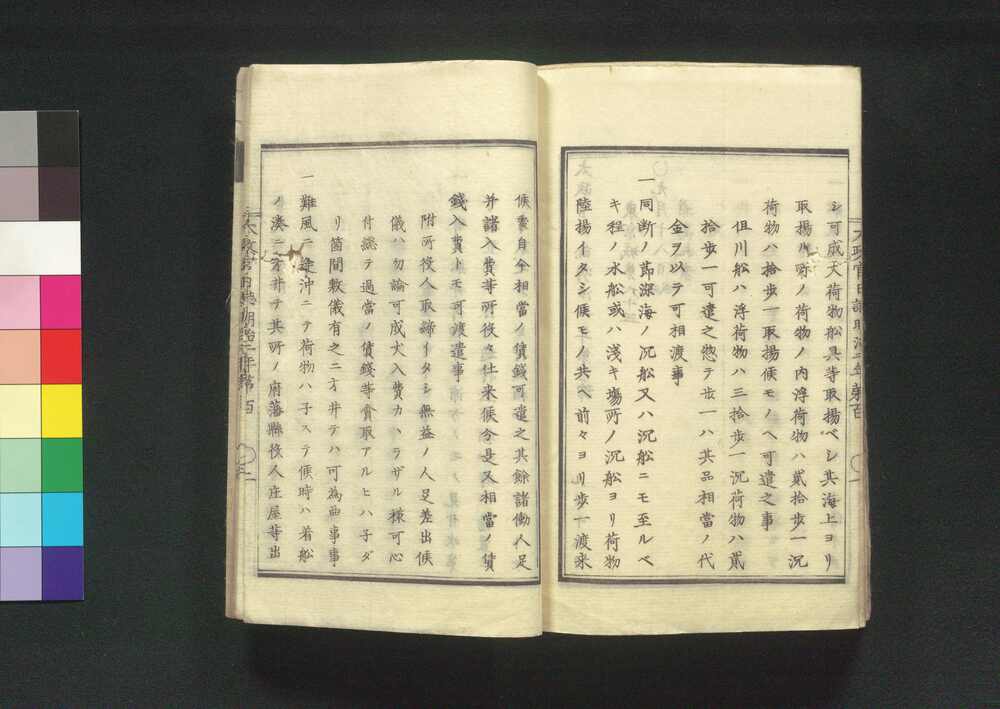 シ可成丈荷物船具等取揚ベシ其海上ヨリ
取揚ル所ノ荷物ノ内浮荷物ハ貳拾歩一沉
荷物ハ拾歩一取揚候モノヘ可遣之事
但川船ハ浮荷物ハ三拾歩一沉荷物ハ貳
拾歩一可遣之惣テ歩一ハ其品相當ノ代
金ヲ以テ可相渡事
一同断ノ節深海ノ沉船又ハ沉船ニモ至ルベ
キ程ノ水船或ハ浅キ塲所ノ沉船ヨリ荷物
陸揚イタシ候モノ共ヘ前々ヨリ歩一渡来
候處自今相當ノ賃錢可遣之其餘諸働人足
并諸入費等所役々仕来候分是又相當ノ賃
錢入費トモ可渡遣事
附所役人取締イタシ無益ノ人足差出候
儀ハ勿論可成丈入費カヽラザル様可心
付総テ過當ノ賃錢等貪取アルヒハ子ダ
リ箇間敷儀有之ニ於テハ可為曲事事
一難風ニ逢沖ニテ荷物ハ子ステ候時ハ着船
ノ湊ニ於テ其所ノ府藩縣役人庄屋等出
太政官日誌明治二年第百